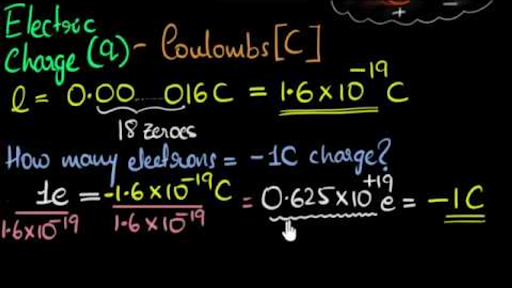 Electric
Charge (Q) - Coulombs [C]
e = 0.00...016 C = 1.6 x 10⁻¹⁹ C
18 zeroes
How many electrons = -1C charge?
1e = -1.6 x 10⁻¹⁹ C = 0.625 x 10⁺¹⁹ e = -1C
1.6 x 10⁻¹⁹ 1.6 x 10⁻¹⁹